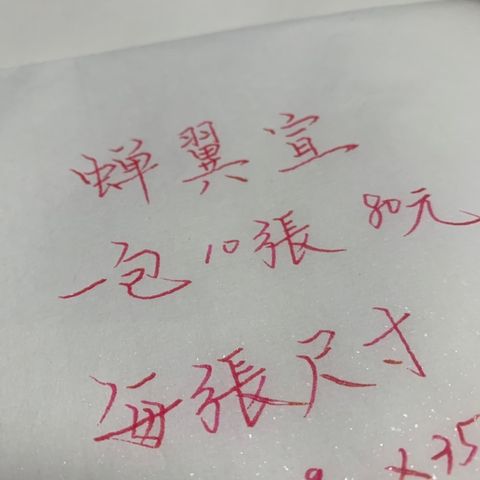 蝉翼宣
一包10張 80元
每張尺寸
x35